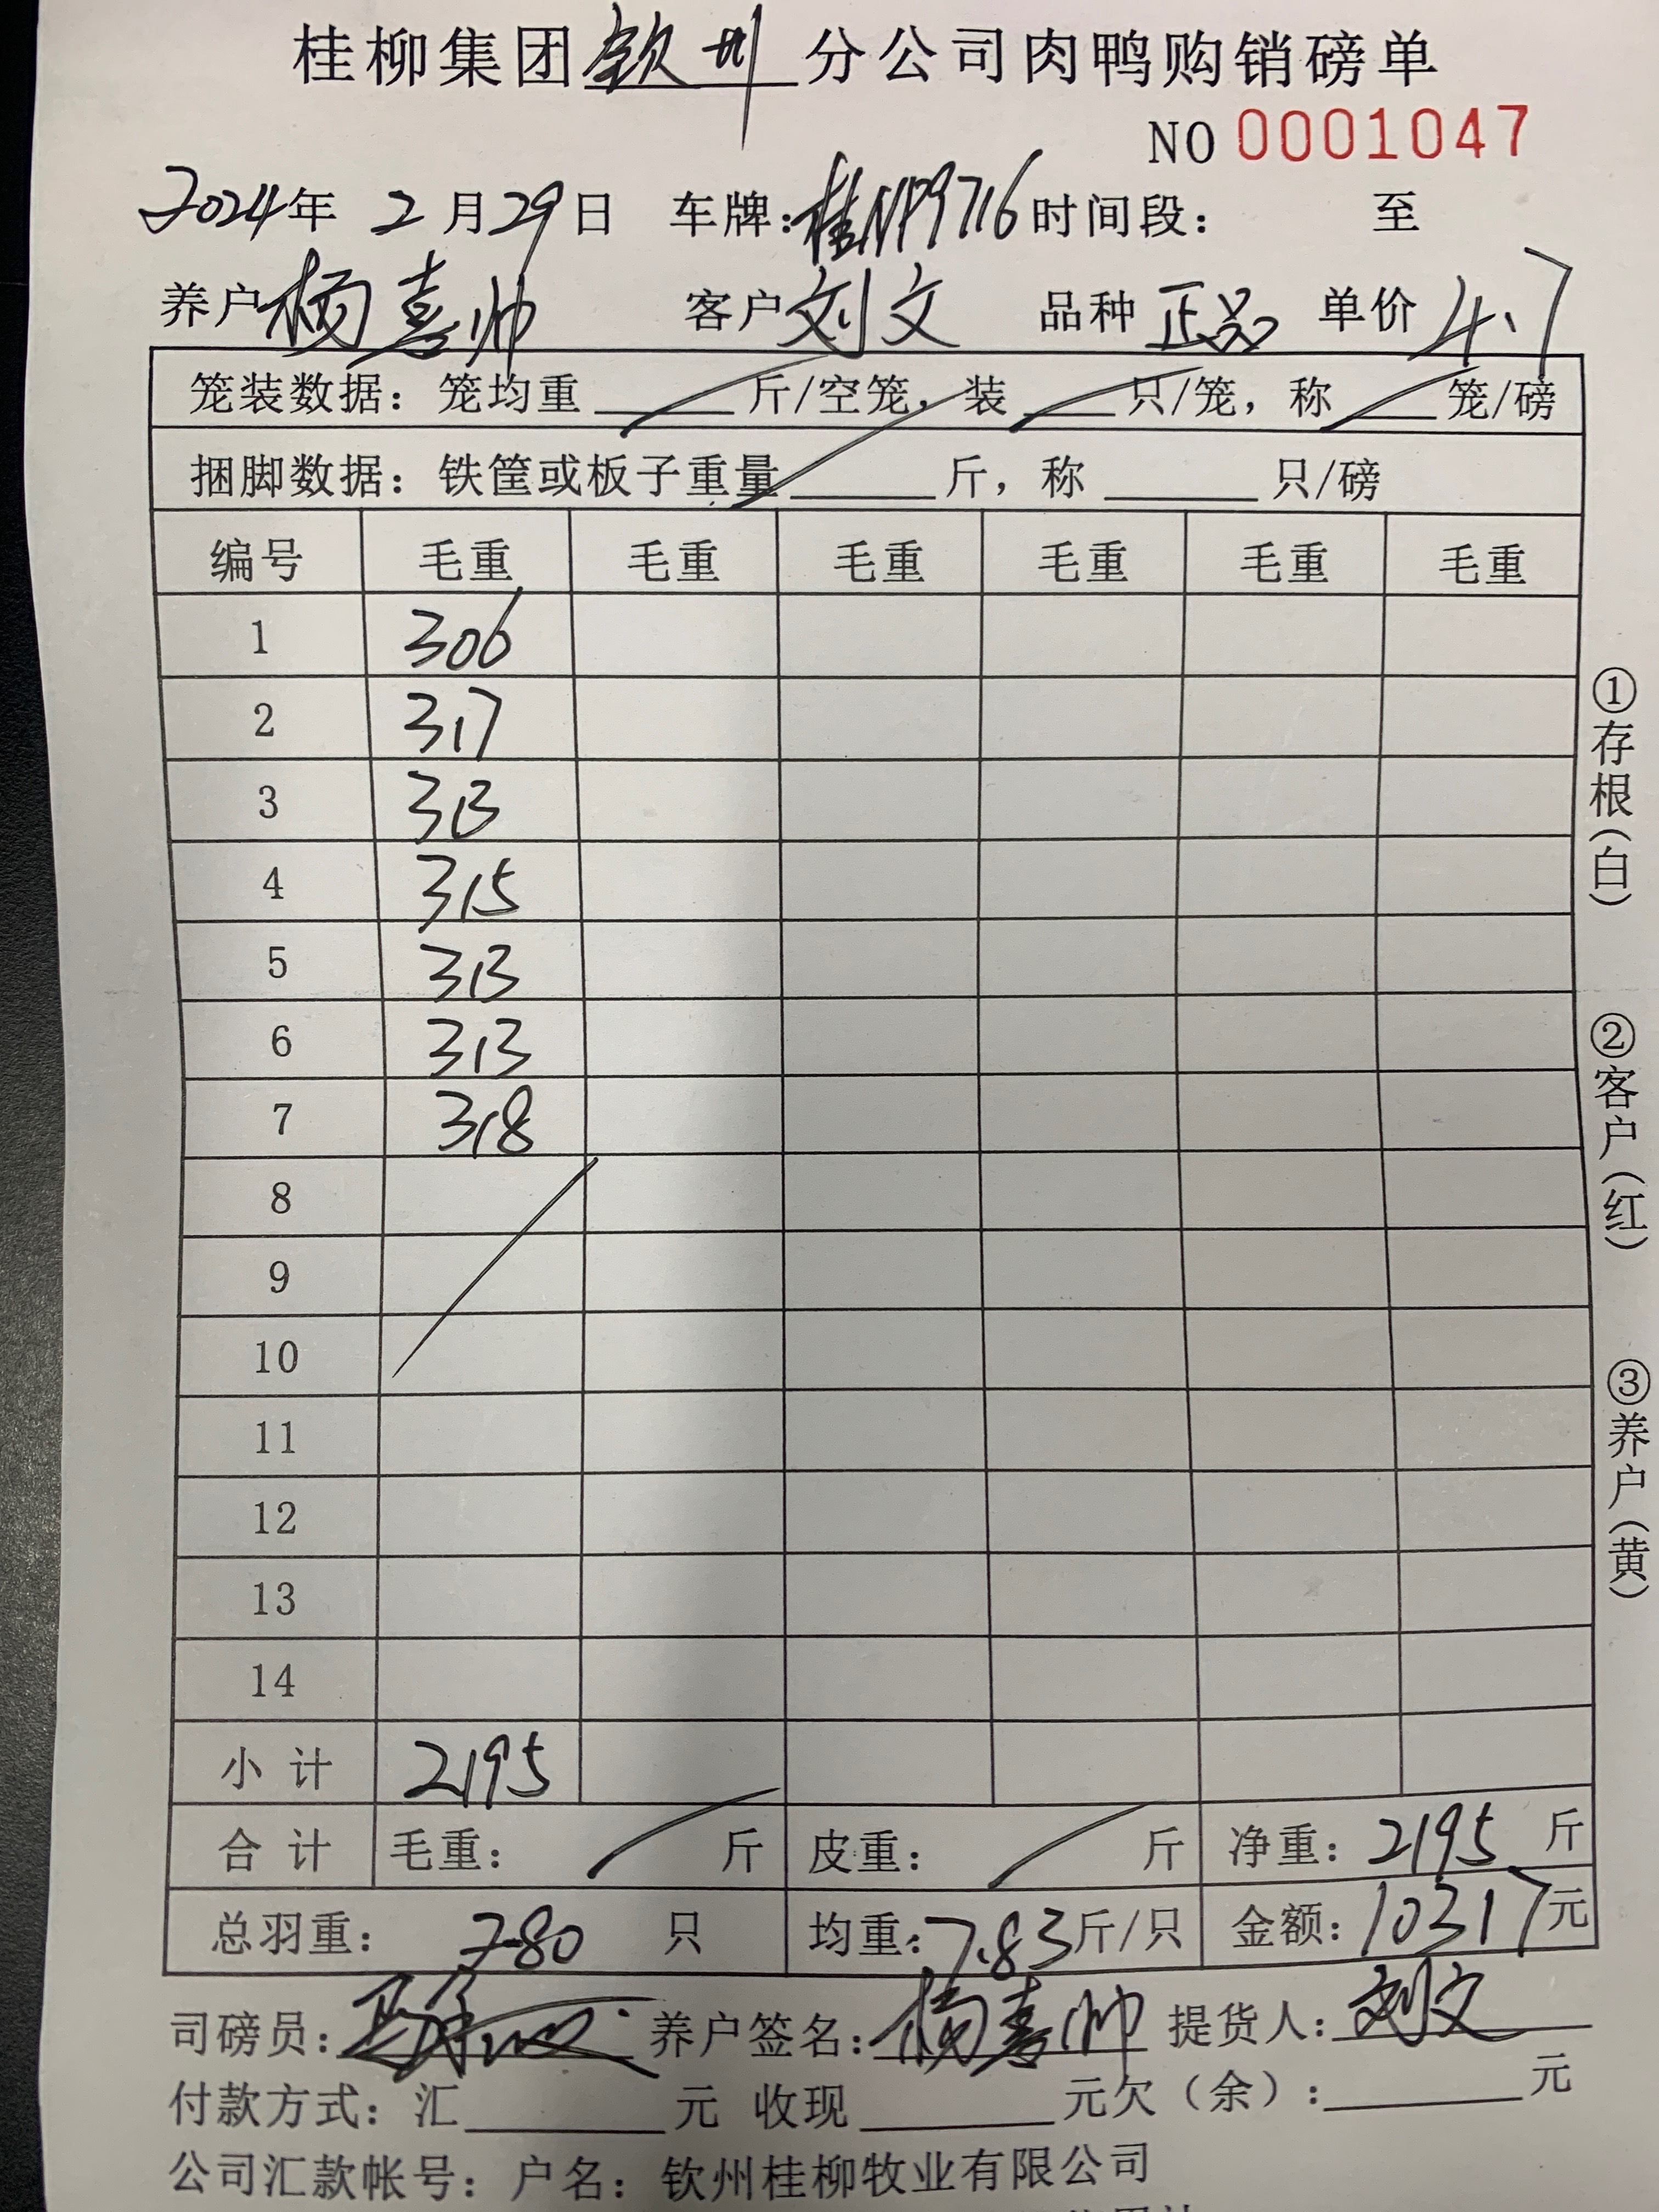 桂柳集团钦州分公司肉鸭购销磅单
NO 0001047
2024年 2月29日 车牌:桂NP9716 时间段: 至
养户 杨喜帅 客户 刘文 品种 正品 单价 4.7
笼装数据: 笼均重______斤/空笼, 装____只/笼, 称____笼/磅
捆脚数据: 铁筐或板子重量______斤, 称______只/磅
编号 毛重 毛重 毛重 毛重 毛重 毛重
1 306
2 317
3 313
4 315
5 313
6 313
7 318
8
9
10
11
12
13
14
小计 2195
合计 毛重: 斤 皮重: 斤 净重: 2195 斤
总羽重: 280 只 均重: 7.83斤/只 金额: 10317元
司磅员: 养户签名: 杨喜帅 提货人: 刘文
付款方式: 汇______元 收现______元欠(余):______元
公司汇款帐号: 户名: 钦州桂柳牧业有限公司
①存根(白)
②客户(红)
③养户(黄)